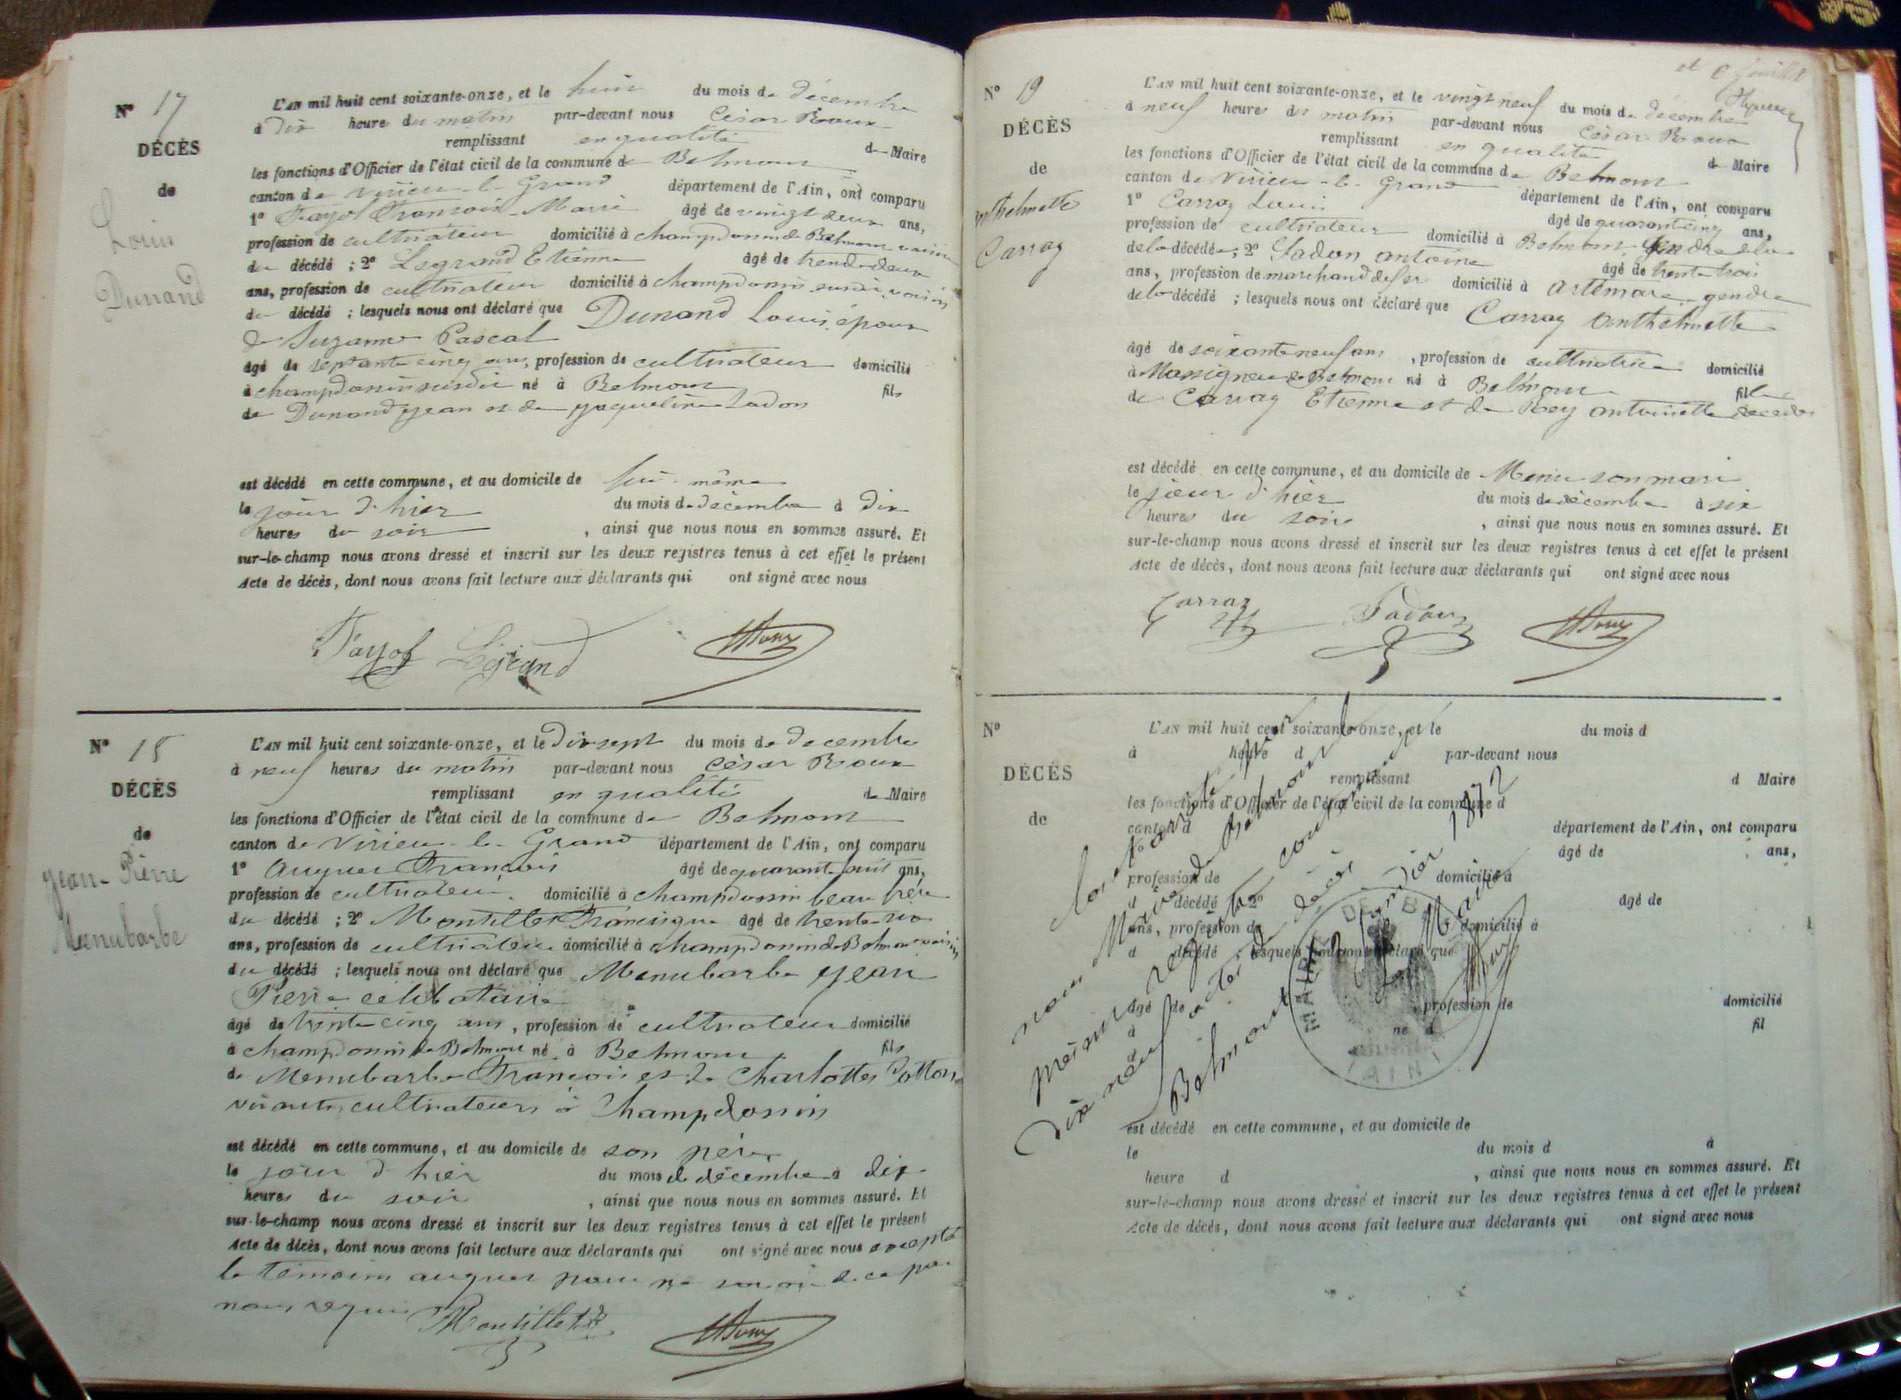 N° 17
DÉCÈS
de
Louis
Dunand
L'AN mil huit cent soixante-onze, et le huit du mois de décembre
à dix heures du matin par-devant nous César Roux
remplissant en qualité de Maire
les fonctions d'Officier de l'état civil de la commune de Belmont
canton de Virieu-le-Grand département de l'Ain, ont comparu
1° Fayol François-Marie âgé de vingt deux ans,
profession de cultivateur domicilié à champdossin de Belmont voisin
du décédé ; 2° Legrand Etienne âgé de trente deux
ans, profession de cultivateur domicilié à champdossin susdit voisin
du décédé ; lesquels nous ont déclaré que Dunand Louis, époux
de Suzanne Pascal
âgé de septante cinq ans, profession de cultivateur domicilié
à champdossin susdit né à Belmont fils
de Dunand Jean et de Jaqueline Tadon
est décédé en cette commune, et au domicile de lui-même
le jour d'hier du mois de décembre à dix
heures du soir , ainsi que nous nous en sommes assuré. Et
sur-le-champ nous avons dressé et inscrit sur les deux registres tenus à cet effet le présent
Acte de décès, dont nous avons fait lecture aux déclarants qui ont signé avec nous
Fayol Legrand Roux
N° 18
DÉCÈS
de
Jean-Pierre
Menubarbe
L'AN mil huit cent soixante-onze, et le dix sept du mois de décembre
à neuf heures du matin par-devant nous César Roux
remplissant en qualité de Maire
les fonctions d'Officier de l'état civil de la commune de Belmont
canton de Virieu-le-Grand département de l'Ain, ont comparu
1° Auguer François âgé de quarante huit ans,
profession de cultivateur domicilié à champdossin beau frère
du décédé ; 2° Montillet Francisque âgé de trente
ans, profession de cultivateur domicilié à champdossin de Belmont voisin
du décédé ; lesquels nous ont déclaré que Menubarbe Jean
Pierre célibataire
âgé de trente cinq ans, profession de cultivateur domicilié
à champdossin de Belmont né à Belmont fils
de Menubarbe François et de Charlotte Totton
vivants, cultivateurs à Champdossin
est décédé en cette commune, et au domicile de son père
le jour d'hier du mois de décembre à dix
heures du soir , ainsi que nous nous en sommes assuré. Et
sur-le-champ nous avons dressé et inscrit sur les deux registres tenus à cet effet le présent
Acte de décès, dont nous avons fait lecture aux déclarants qui ont signé avec nous excepté
le témoin auguer pour ne savoir de ce par
nous requis Montillet Roux
N° 19
DÉCÈS
de
Anthelmette
Carraz
L'AN mil huit cent soixante-onze, et le vingt neuf du mois de décembre
à neuf heures du matin par-devant nous César Roux
remplissant en qualité de Maire
les fonctions d'Officier de l'état civil de la commune de Belmont
canton de Virieu-le-Grand département de l'Ain, ont comparu
1° Carraz Louis âgé de quarante cinq ans,
profession de cultivateur domicilié à Belmont gendre de la
de la décédée ; 2° Tadon antoine âgé de trente trois
ans, profession de marchand de fer domicilié à Artemare gendre
de la décédé ; lesquels nous ont déclaré que Carraz Anthelmette
âgé de soixante neuf ans , profession de cultivatrice domicilié
à Massignieu de Belmont né à Belmont fille
de Carraz Etienne et de Rey Antoinette décédés
est décédé en cette commune, et au domicile de son mari
le jour d'hier du mois de décembre à six
heures du soir , ainsi que nous nous en sommes assuré. Et
sur-le-champ nous avons dressé et inscrit sur les deux registres tenus à cet effet le présent
Acte de décès, dont nous avons fait lecture aux déclarants qui ont signé avec nous
Carraz Tadon Roux
N°
DÉCÈS
de
L'AN mil huit cent soixante-onze, et le du mois d
à heure d par-devant nous
remplissant d Maire
les fonctions d'Officier de l'état civil de la commune d
canton d département de l'Ain, ont comparu
1° âgé de ans,
profession de domicilié à
d décédé ; 2° âgé de
ans, profession de domicilié à
d décédé ; lesquels nous ont déclaré que
âgé de , profession de domicilié
à né à fil
d
est décédé en cette commune, et au domicile de
le du mois d à
heure d , ainsi que nous nous en sommes assuré. Et
sur-le-champ nous avons dressé et inscrit sur les deux registres tenus à cet effet le présent
Acte de décès, dont nous avons fait lecture aux déclarants qui ont signé avec nous
Clos et arrêté par
nous Maire de Belmont le
présent registre contenant
dix neuf actes de décès
Belmont janvier 1872
Le Maire
Roux
MAIRIE DE B
(AIN)